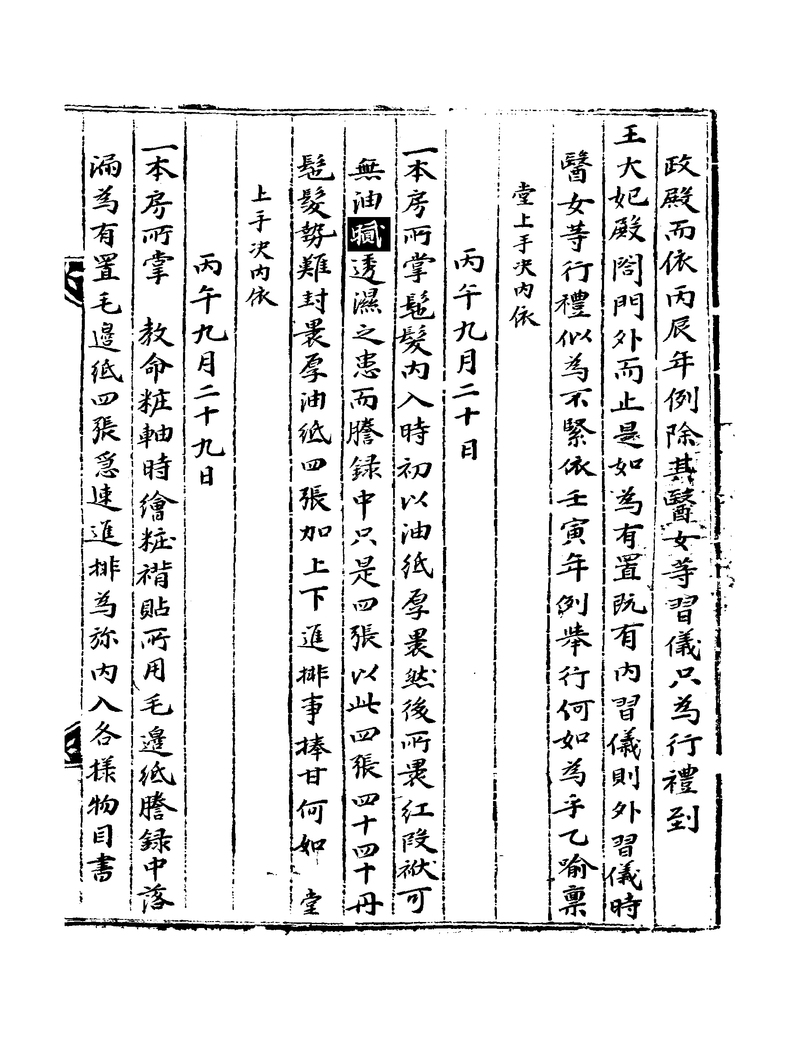 政殿而依丙辰年例除其醫女等習儀只為行禮到
王大妃殿閤門外而止是如為有置旣有內習儀則外習儀時
醫女等行禮似為不緊依壬寅年例擧行何如為乎乙喩稟
堂上手决內依
丙午九月二十日
一本房所掌髢髮內入時初以油紙厚裹然後所裹紅段袱可
無油膱透濕之患而謄録中只是四張以此四張四十四十丹
髢髮勢難封裹厚油紙四張加上下進排事捧甘何如 堂
上手决內依
丙午九月二十九日
一本房所掌 教命粧軸時繪粧褙貼所用毛邊紙謄録中落
漏為有置毛邊紙四張爲速進排為㢱內入各樣物目書